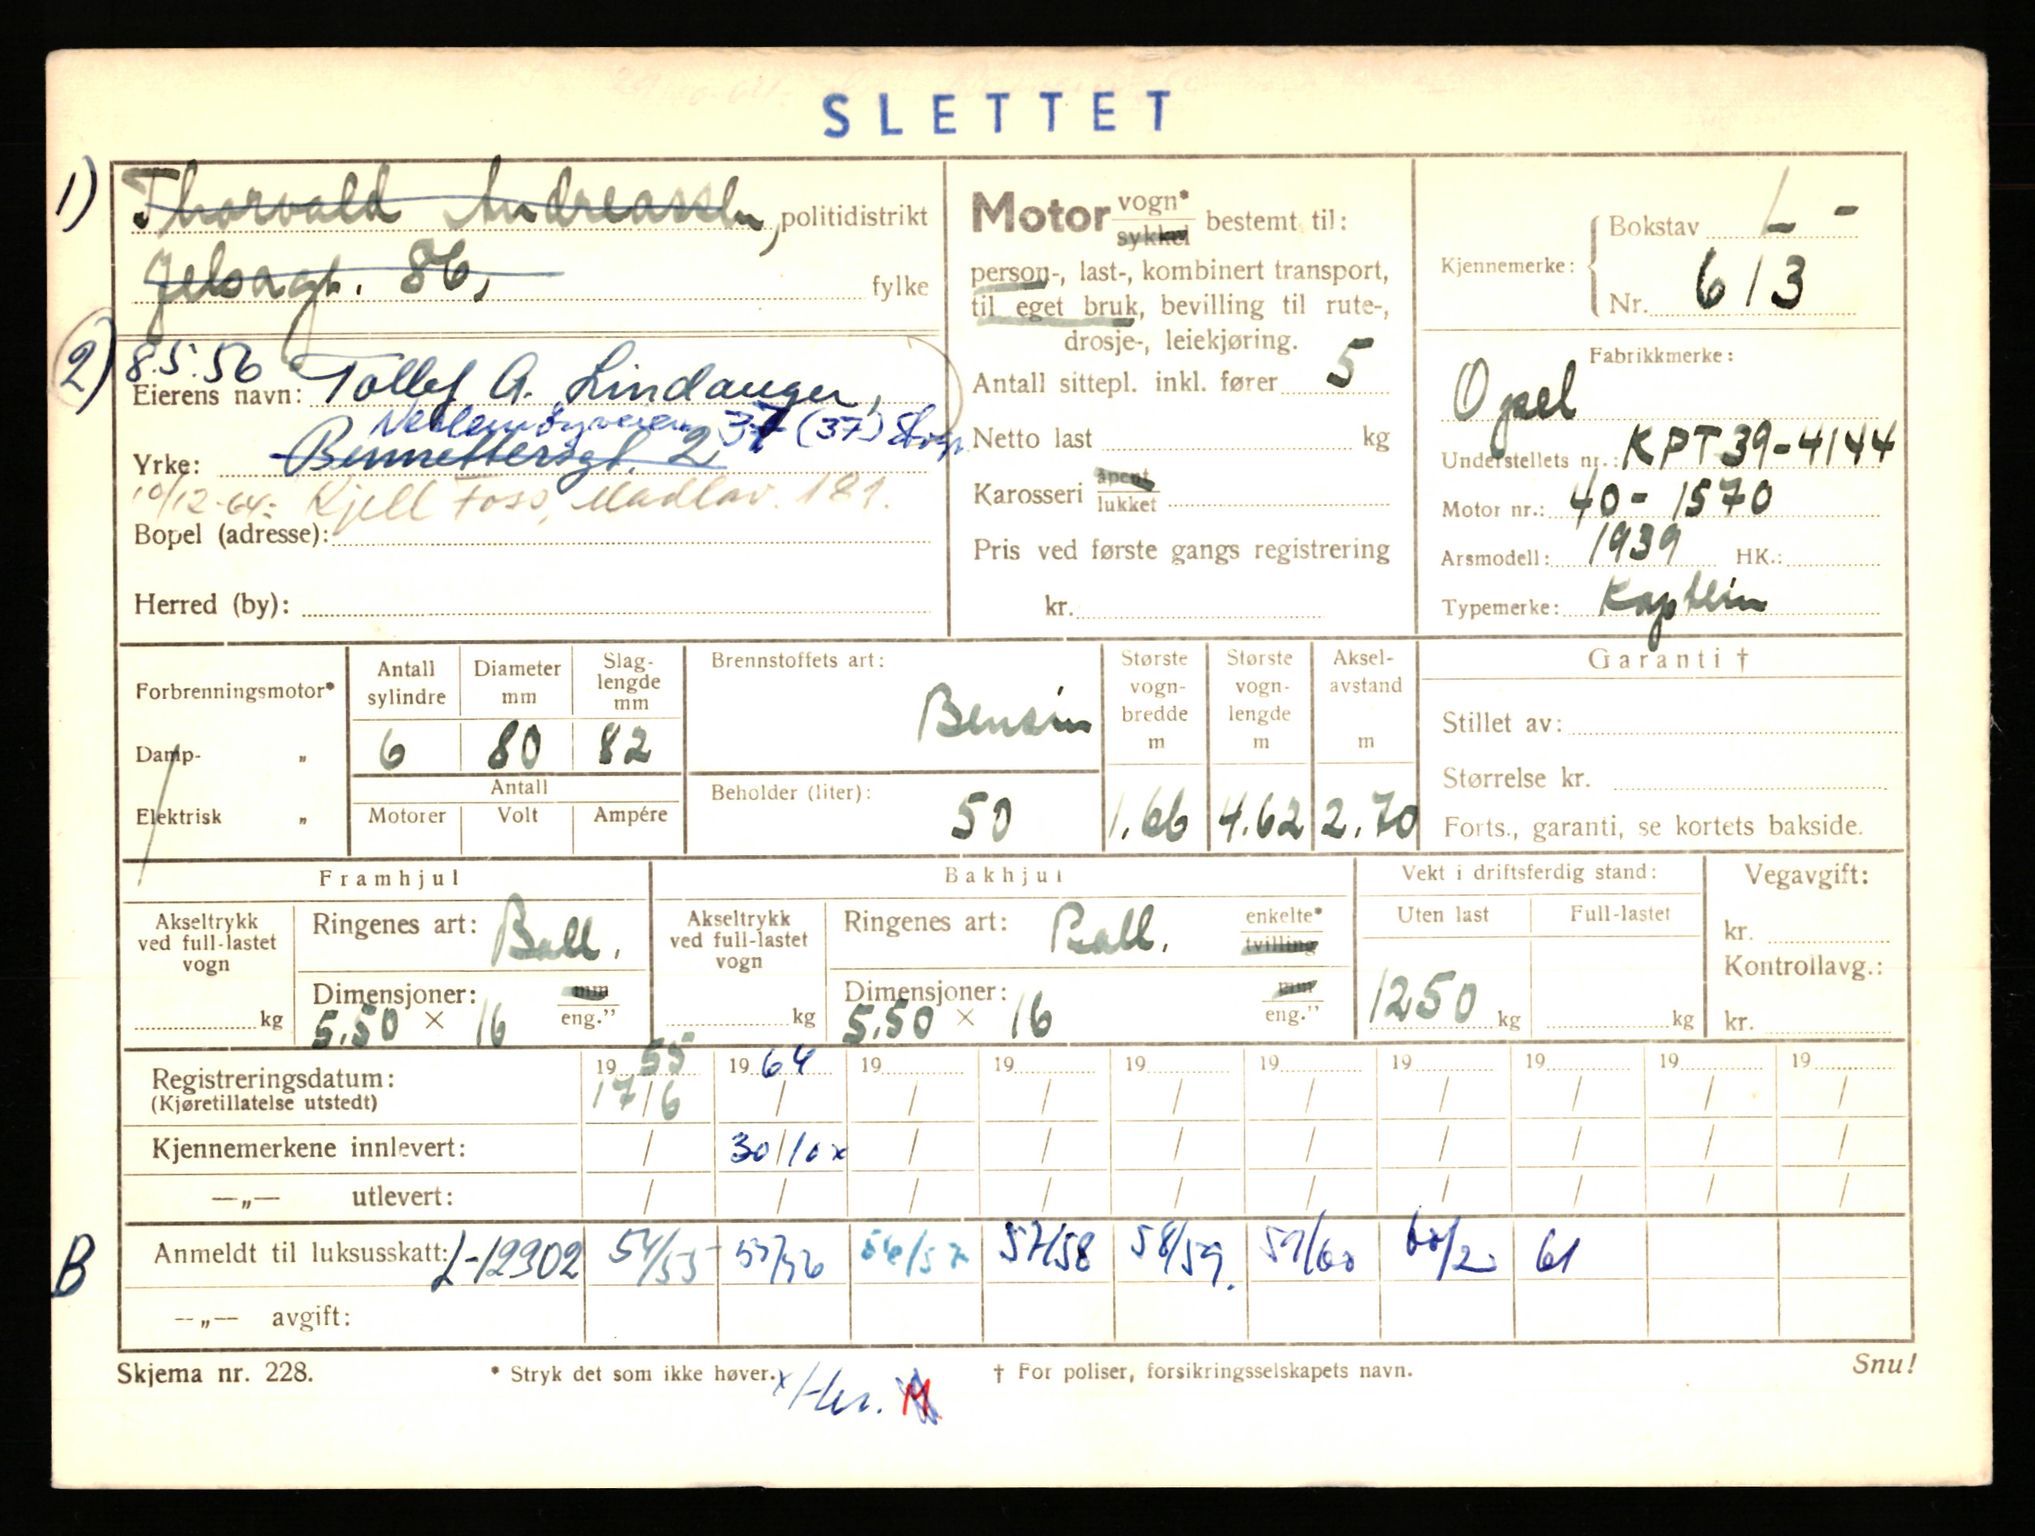 SLETTET
1) Thorvald Andreassen, politidistrikt
Jelsagt. 86, fylke
2) 8.5.56
Eierens navn: Tollef A. Lindanger,
37 (37)
Yrke: Bennettersgt. 2
10/12-64: Kjell Foss, Madlav. 121.
Bopel (adresse):
Herred (by):
Motor vogn* sykkel bestemt til:
person-, last-, kombinert transport,
til eget bruk, bevilling til rute-,
drosje-, leiekjøring.
Antall sittepl. inkl. fører 5
Netto last kg
Karosseri åpent lukket
Pris ved første gangs registrering
kr.
Kjennemerke: Bokstav L-
Nr. 613
Fabrikkmerke:
Opel
Understellets nr.: KPT39-4144
Motor nr.: 40-1570
Arsmodell: 1939 HK.:
Typemerke: Kaptein
Forbrenningsmotor*
Damp- „
Elektrisk „
Antall sylindre Diameter mm Slag-lengde mm
6 80 82
Antall
Motorer Volt Ampére
Brennstoffets art:
Bensin
Beholder (liter):
50
Største vogn-bredde m Største vogn-lengde m Aksel-avstand m
1.66 4.62 2.70
Garanti †
Stillet av:
Størrelse kr.
Forts., garanti, se kortets bakside.
Framhjul
Akseltrykk ved full-lastet vogn
kg
Ringenes art: Ball.
Dimensjoner: mm
5.50 × 16 eng.”
Bakhjul
Akseltrykk ved full-lastet vogn
kg
Ringenes art: Ball. enkelte* tvilling
Dimensjoner: mm
5.50 × 16 eng.”
Vekt i driftsferdig stand:
Uten last Full-lastet
1250 kg kg
Vegavgift:
kr.
Kontrollavg.:
kr.
Registreringsdatum: 19 55 19 64 19 19 19 19 19 19 19 19
(Kjøretillatelse utstedt) 17/6 / / / / / / / / /
Kjennemerkene innlevert: / 30/10 x / / / / / / / /
—„— utlevert: / / / / / / / / / /
B Anmeldt til luksusskatt: L-12902 54/55 55/56 56/57 57/58 58/59. 59/60 60/2. 61
—„— avgift:
Skjema nr. 228. * Stryk det som ikke høver. † For poliser, forsikringsselskapets navn. Snu!
x